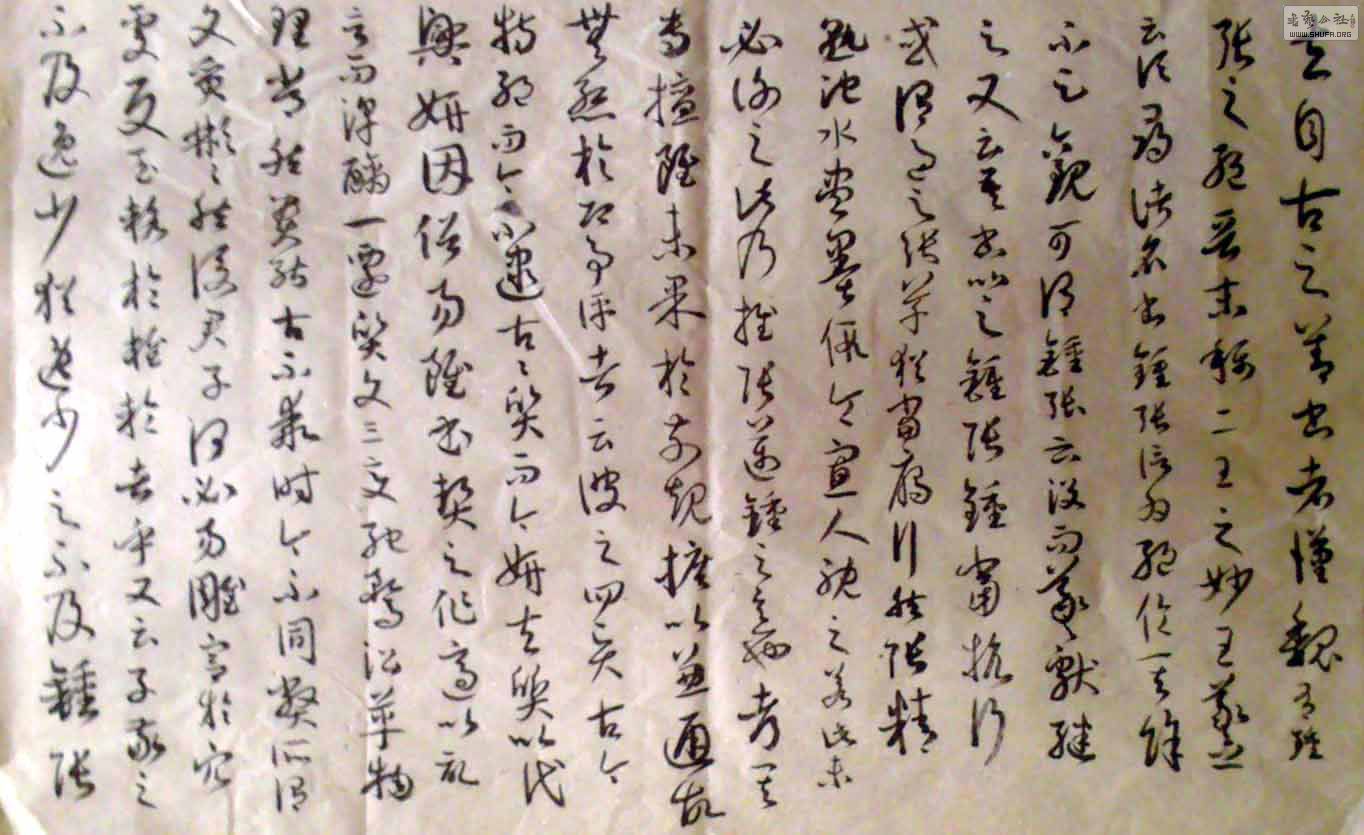 夫自古之善書者漢魏有鍾
張之絕晉末稱二王之妙王羲之
云頃尋諸名書鍾張信為絕倫其餘
不足觀可謂鍾張云沒而羲獻繼
之又云吾書比之鍾張鍾當抗行
或謂過之張草猶當雁行然張精
熟池水盡墨假令寡人耽之若此未
必謝之此乃推張邁鍾之意也考其
專擅雖未果於前規摭以兼通故
無慚於即事評者云彼之四賢古今
特絕而今不逮古々質而今妍夫質以代
興妍因俗易雖書契之作適以記
言而淳醨一遷質文三變馳鶩沿革物
理常然貴能古不乖時今不同弊所謂
文質彬々然後君子何必易雕宮於穴
處反玉輅於椎輪者乎又云子敬之
不及逸少猶逸少之不及鍾張
WWW.SHUFA.ORG